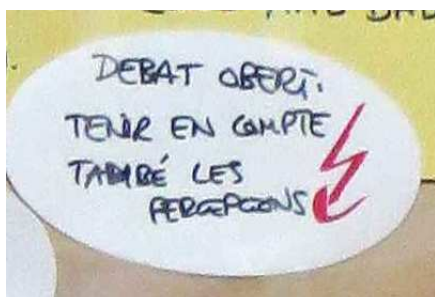 DEBAT OBERT.
TENIR EN COMPTE
TAMBÉ LES
PERCEPCIONS